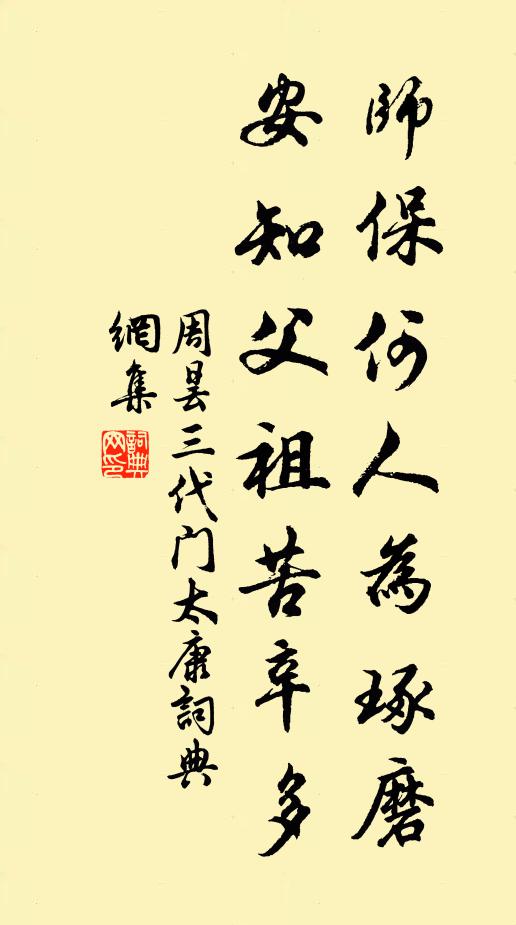 師保何人為琢磨
安知父祖苦辛多
周曇三代门太康詞典
網集
詞典
网印